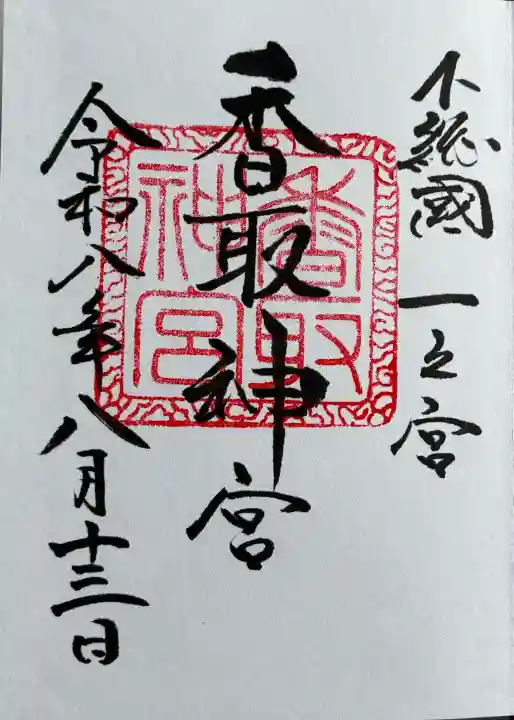 下総國 一之宮
香取神宮
香取神宮
令和八年 八月十三日